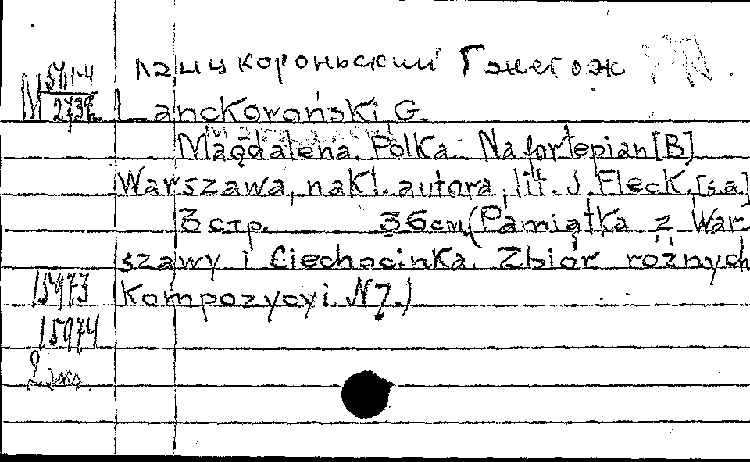 Ланцкороньский Гжегож
М 501-4
2732
Lanckoroński, G.
Magdalena. Polka. Na fortepian [B]
Warszawa, nakl. autora, lit. J. Fleck, [s.a.]
3 стр. 36 см (Pamiątka z War-
szawy i Ciechocinka. Zbiór różnych
kompozycyi. N 7.)
15973
15974
2 экз.